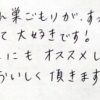 巣ごもりが、す
て 大好きです!
にも オススメし
おいしく 頂きます